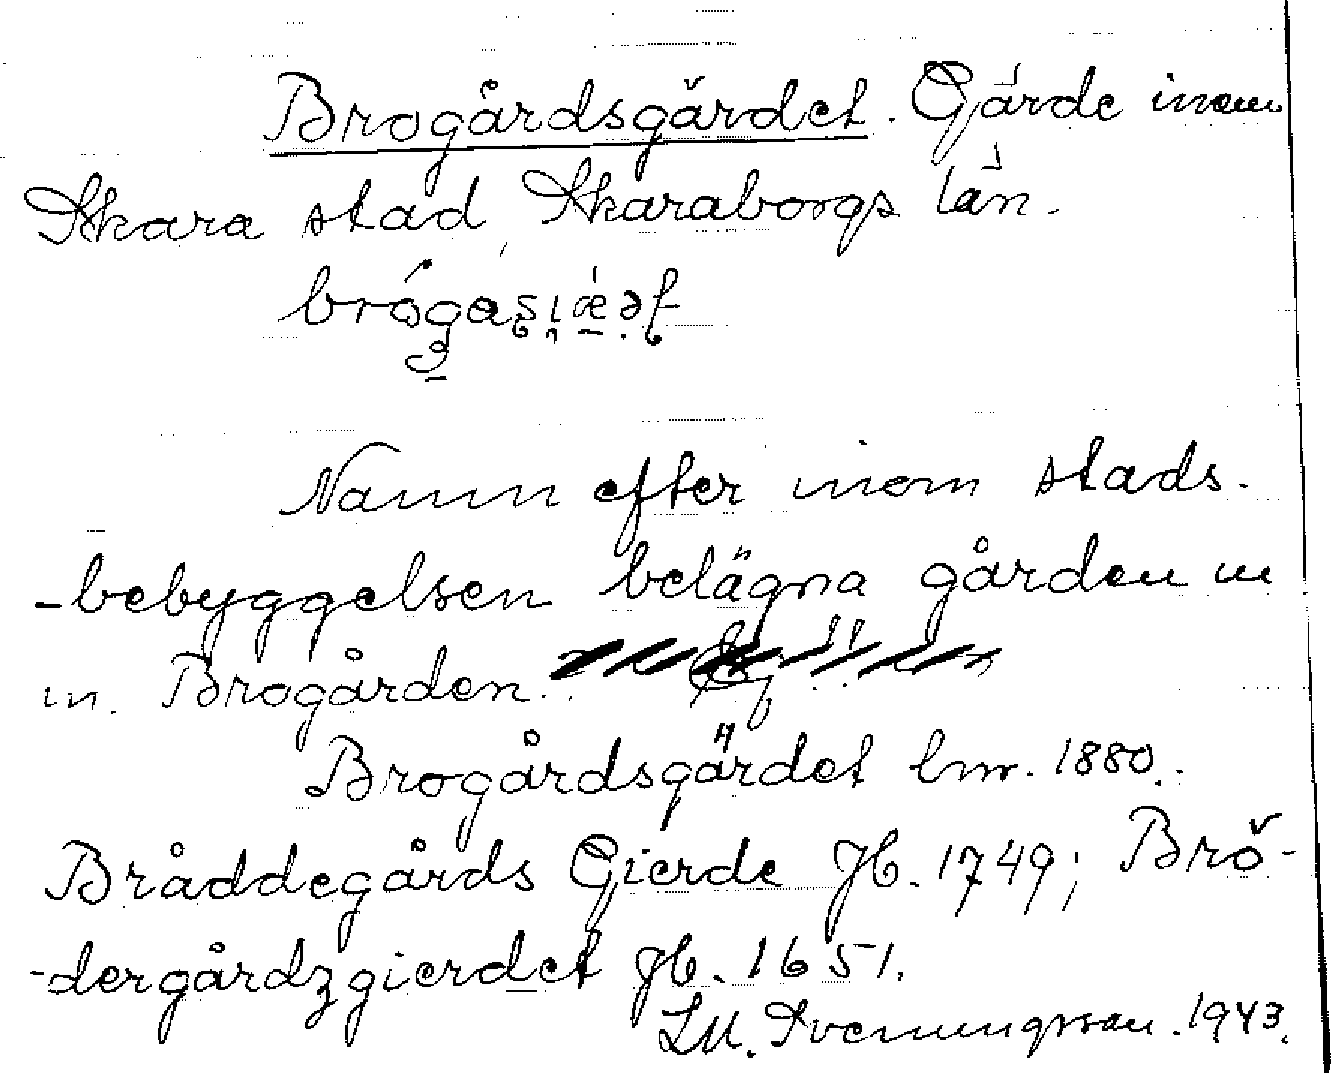 Brogårdsgärdet. Gärde inom
Skara stad, Skaraborgs län.
Namn efter inom stads-
-bebyggelsen belägna gården m
m. Brogården.
Brogårdsgärdet lm. 1880.
Bråddegårds Gierde Jb. 1749; Brö-
-dergårdzgierdet Jb. 1651.
Svenungsson. 1943.